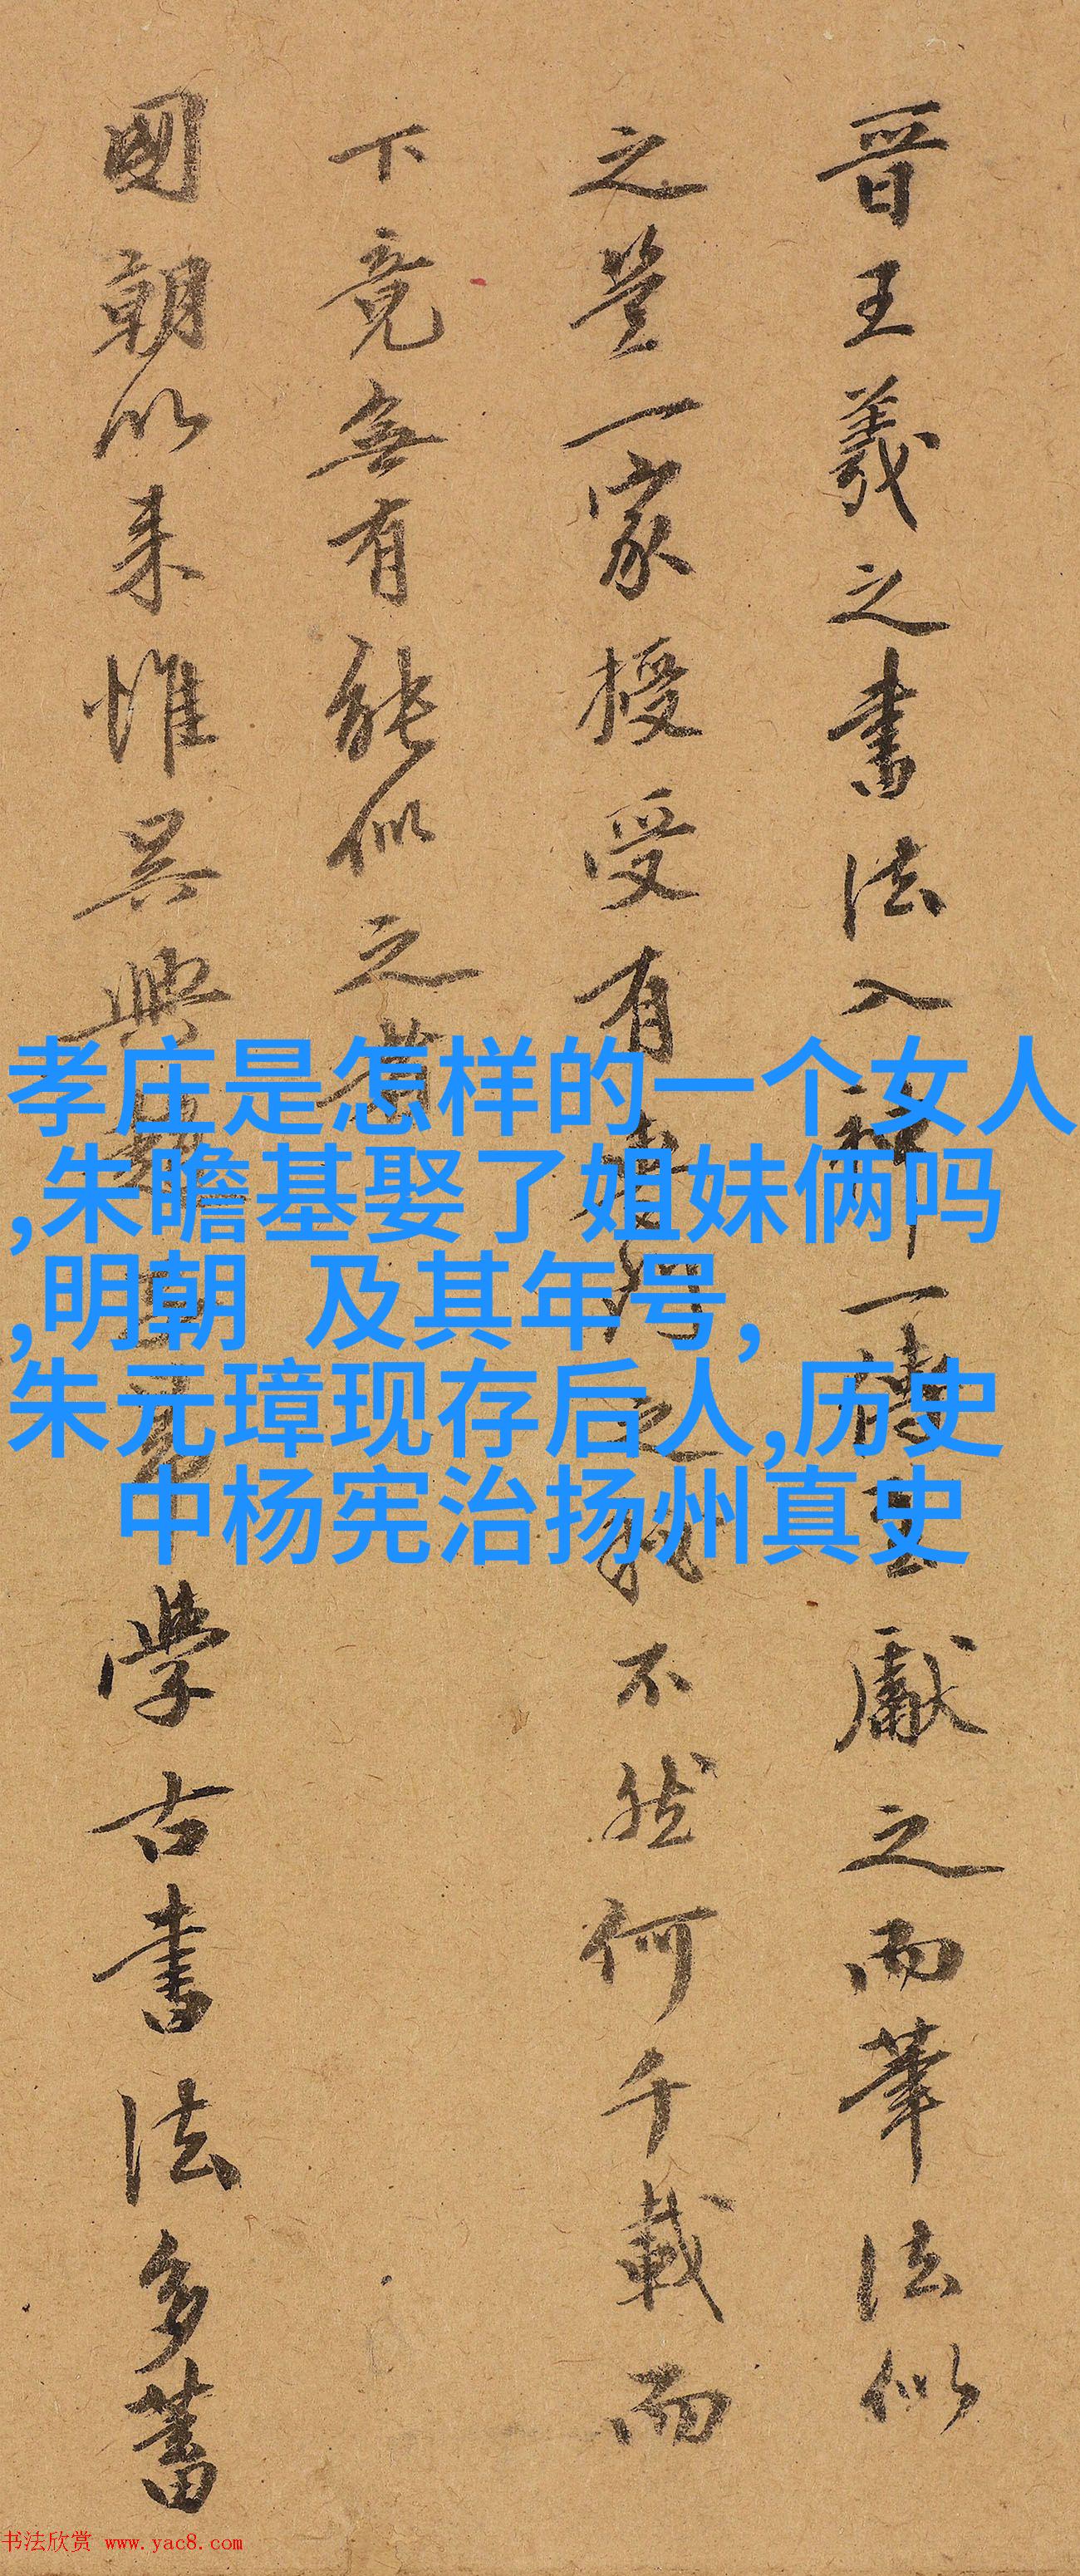 晉王羲之書法入神一傳獻之而筆法似
之豈一家授受有之不然何千載而
下竟無有能似之者
國朝以来惟吳興趙學古書法多蓄
孝庄是怎样的一个女人
,朱瞻基娶了姐妹俩吗
,明朝 及其年号,
朱元璋现存后人,历史
中杨宪治扬州真史
书法欣赏 www.yac8.com